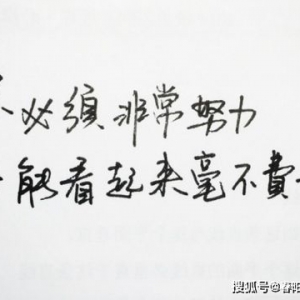 必须非常努力
能看起来毫不費
搜狐号@春阳